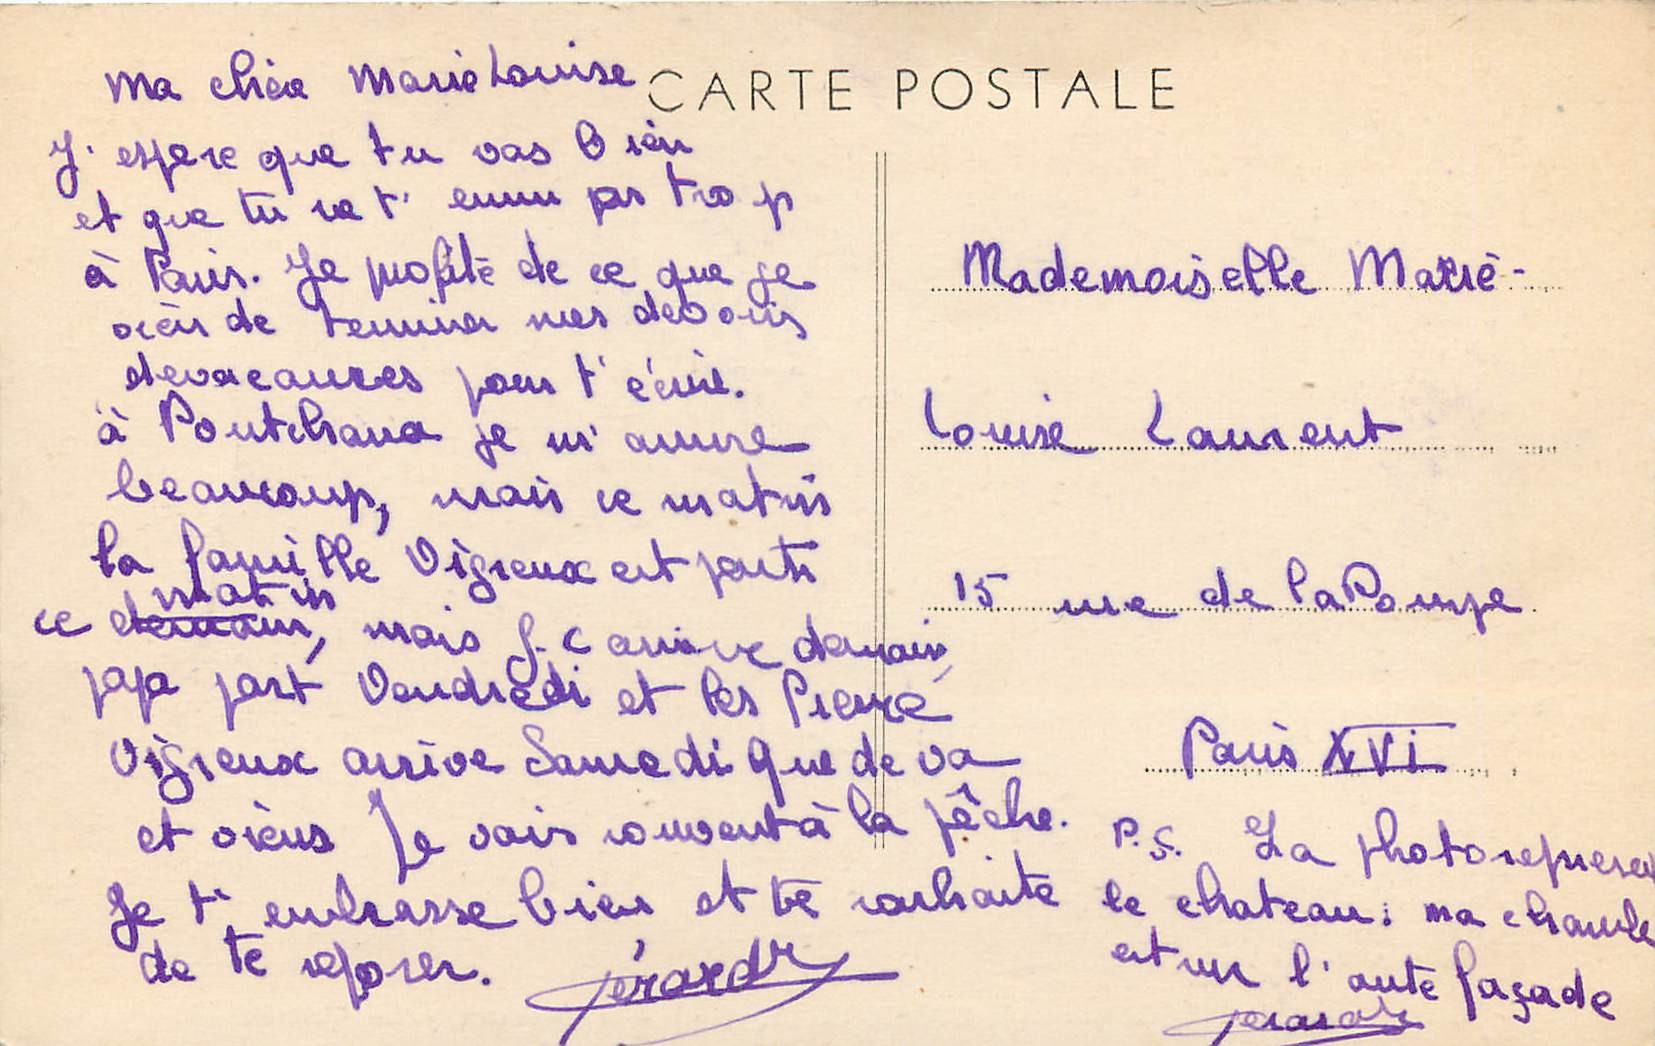 CARTE POSTALE
Ma chère Marie Louise
J'espere que tu vas bien
et que tu ne t' ennui pas trop
à Paris. Je profite de ce que je
viens de terminer mes devoirs
devacances pour t' écrire.
à Pontchara je m' amuse
beaucoup, mais ce matin
la famille Vigreux est partie
matin
ce demain, mais J. C arrive demain,
papa part Vendredi et les Pierre
Vigreux arrive Samedi que de va
et viens Je vais souvent à la pêche.
Je t' embrasse bien et te souhaite
de te reposer. Gérard
Mademoiselle Marie-
Louise Laurent
15 rue de la Pompe
Paris XVI
P.S. La photo represen
le chateau: ma chambre
est sur l' autre façade
Gerard